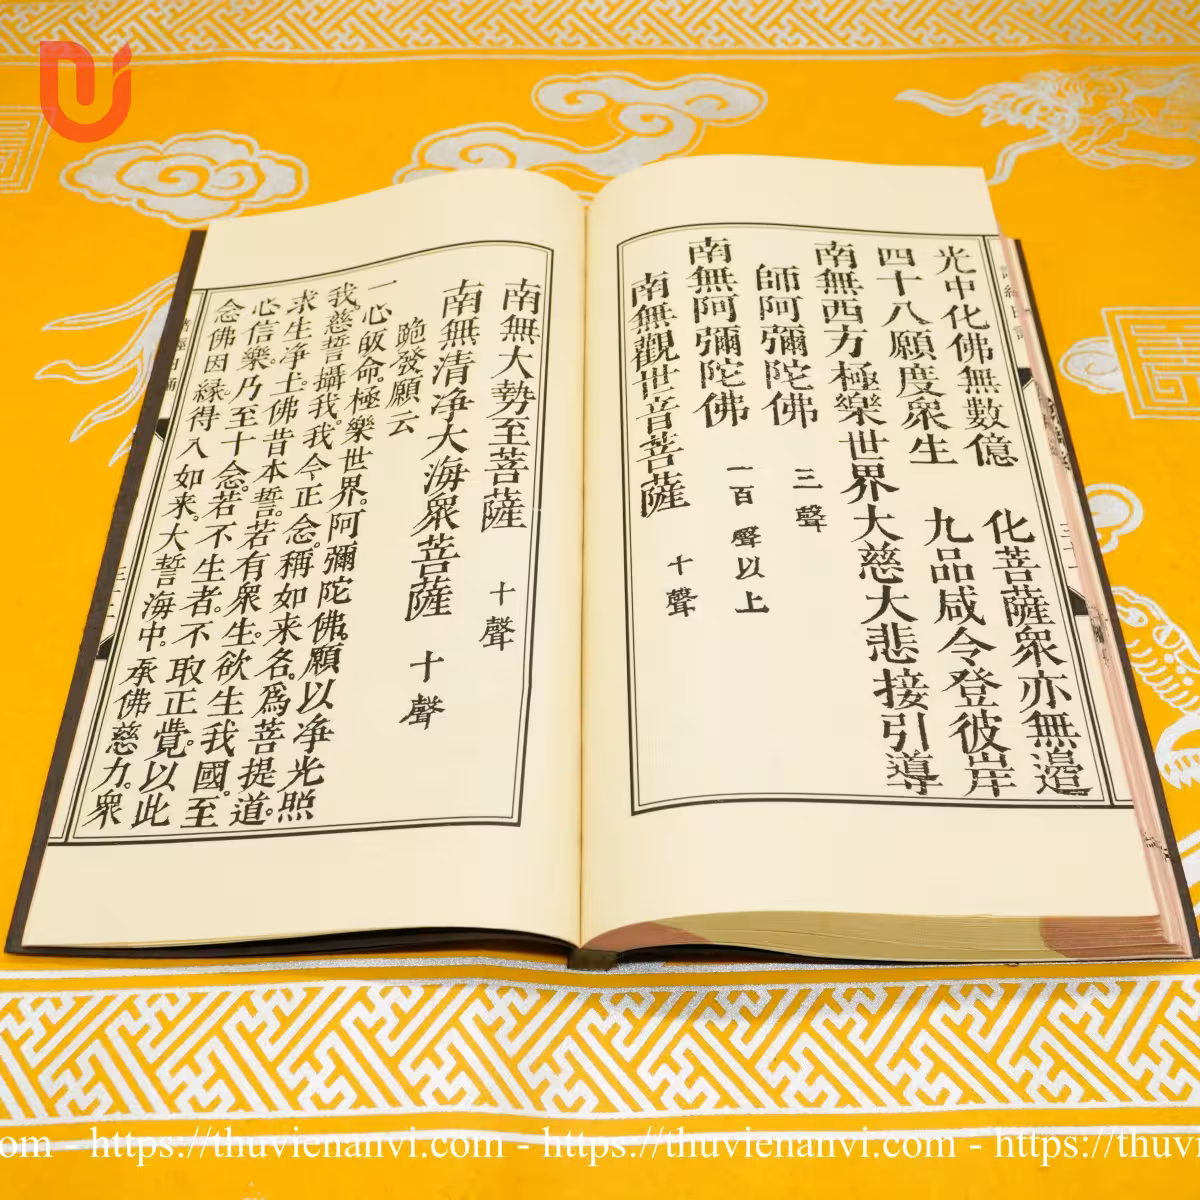 光中化佛無數億 化菩薩衆亦無邊
四十八願度衆生 九品咸令登彼岸
南無西方極樂世界大慈大悲接引導
師阿彌陀佛 三聲
南無阿彌陀佛 一百聲以上
南無觀世音菩薩 十聲
南無大勢至菩薩 十聲
南無清淨大海衆菩薩 十聲
跪發願云
一心皈命。極樂世界。阿彌陀佛。願以净光照
我。慈誓攝我。我今正念。稱如來名。爲菩提道。
求生净土。佛昔本誓。若有衆生。欲生我國。至
心信樂。乃至十念。若不生者。不取正覺。以此
念佛因緣。得入如來。大誓海中。承佛慈力。衆
https://thuvienanvi.com - https://thuvienanvi.com